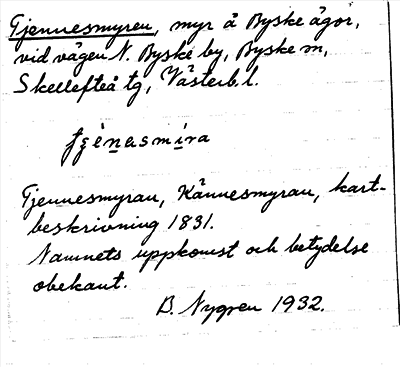 Gjennesmyren, myr å Byske ägor,
vid vägen N. Byske by, Byske sn,
Skellefteå tg, Västerb. l.
Gjennesmyran, Kännesmyran, kart-
beskrivning 1831.
Namnets uppkomst och betydelse
obekant.
B. Nygren 1932.